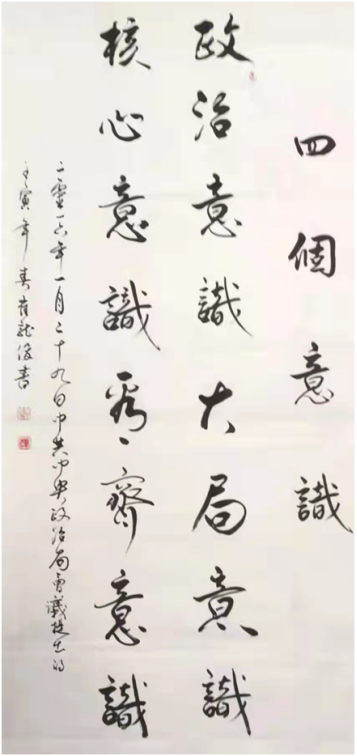 四個意識
政治意識大局意識
核心意識看齊意識
二零一六年一月二十九日中共中央政治局會議提出的
壬寅年春崔龍俊書